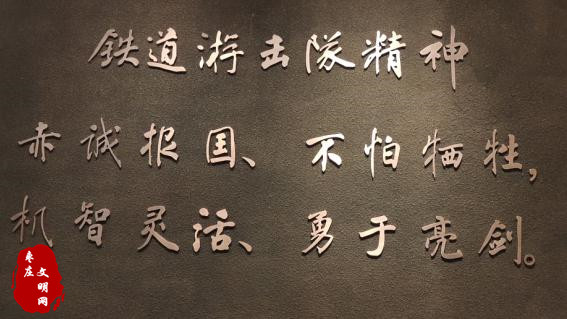 铁道游击队精神
赤诚报国、不怕牺牲，
机智灵活、勇于亮剑。
枣庄
文明网